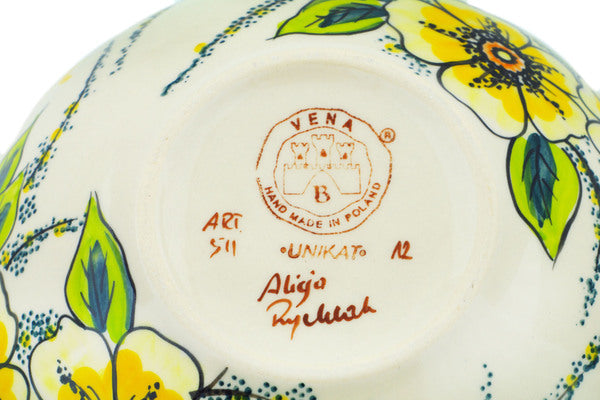 VENA
®
B
HAND MADE IN POLAND
ART.
511 •UNIKAT• 12
Alicja
Rychlak